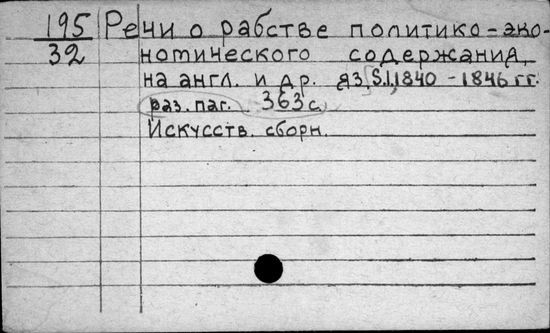 195 Речи о рабстве политико-эко-
32 номического содержания,
на англ. и др. яз. S.l., 1840 - 1846 гг.
раз. паг. 363 с.
Искусств. сборн.